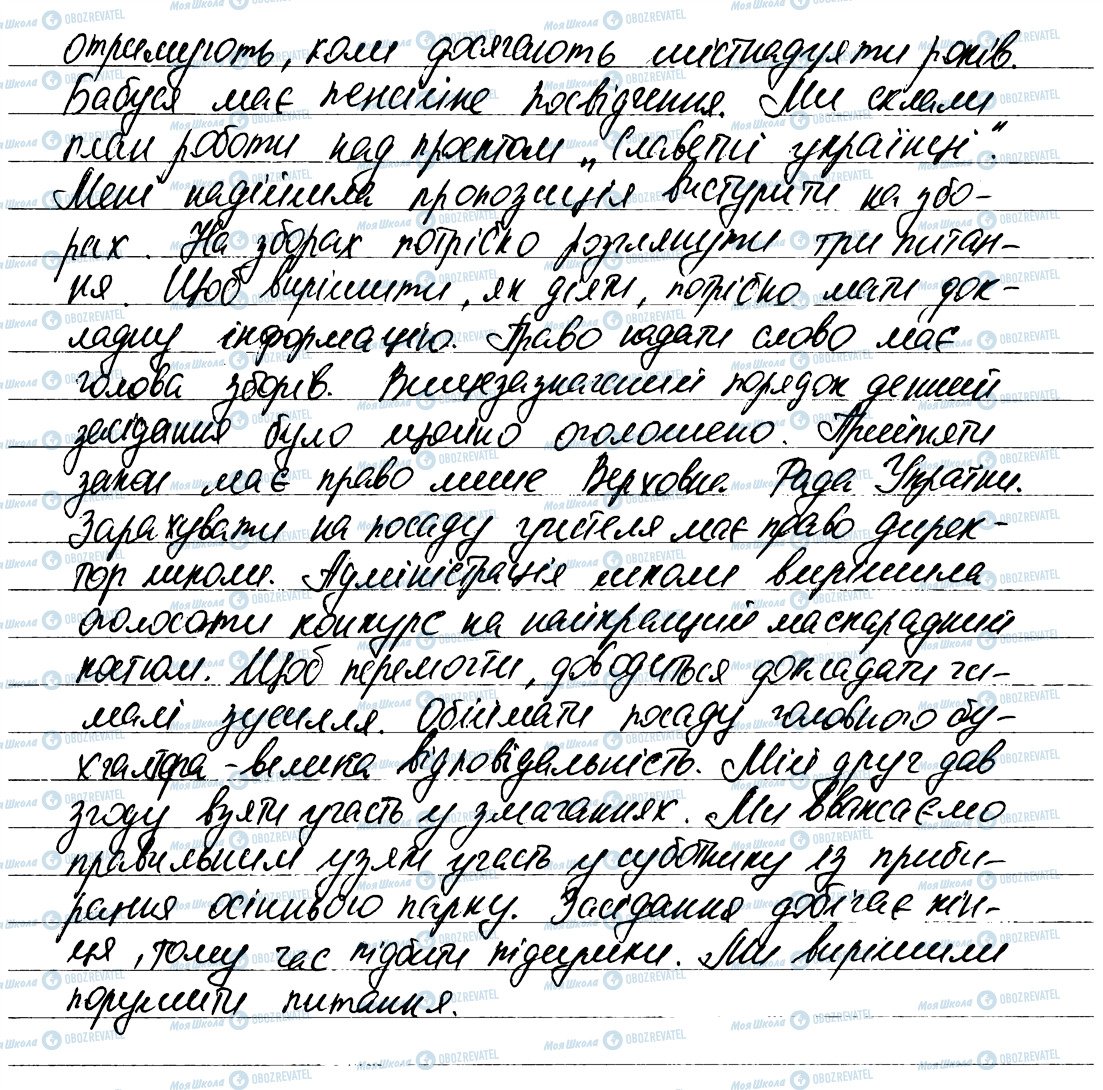 отримують, коли досягають шістнадцяти років.
Бабуся має пенсійне посвідчення. Ми склали
план роботи над проєктом „Славетні українці".
Мені надійшла пропозиція виступити на збо-
рах. На зборах потрібно розглянути три питан-
ня. Щоб вирішити, як діяти, потрібно мати док-
ладну інформацію. Право надати слово має
голова зборів. Вищезазначений порядок денний
засідання було щойно оголошено. Прийняти
закон має право лише Верховна Рада України.
Зарахувати на посаду учителя має право дирек-
тор школи. Адміністрація школи вирішила
оголосити конкурс на найкращий маскарадний
костюм. Щоб перемогти, доводиться докладати чи-
малі зусилля. Обіймати посаду головного бу-
хгалтера - велика відповідальність. Мій друг дав
згоду взяти участь у змаганнях. Ми вважаємо
правильним узяти участь у суботнику із приби-
рання осіннього парку. Засідання добігає кін-
ця, тому час підбити підсумки. Ми вирішили
порушити питання.
МояШкола OBOZREVATEL